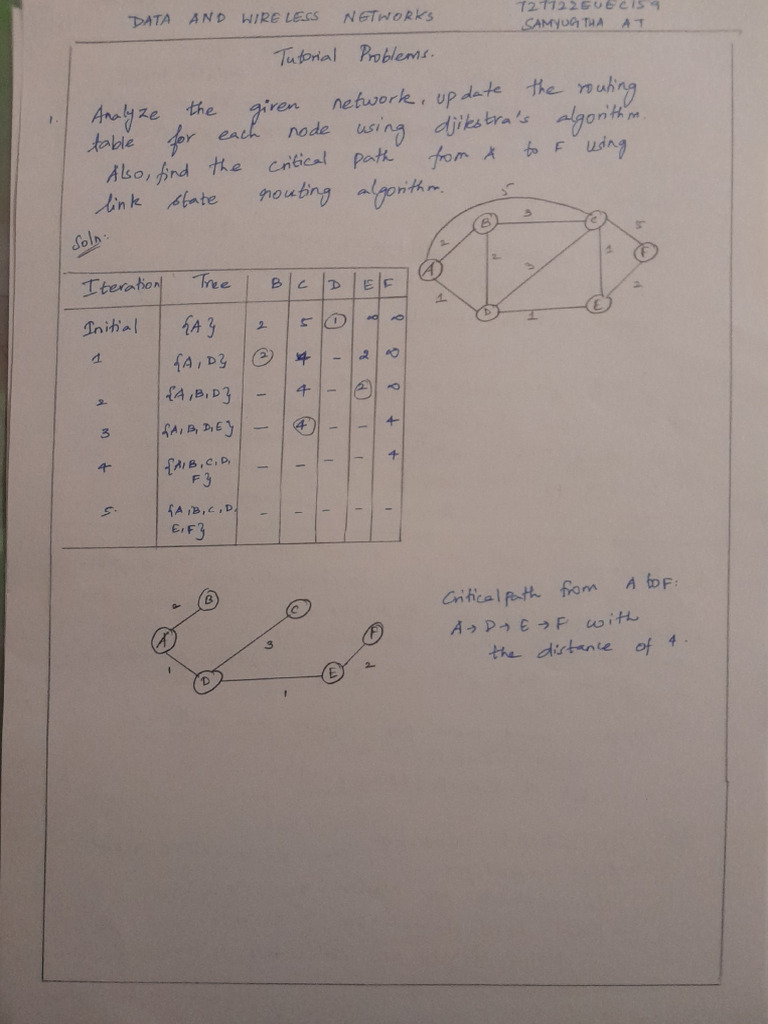 DATA AND WIRELESS NETWORKS
727722EUEC159
SAMYUGTHA A T
Tutorial Problems.
1. Analyze the given network, update the routing
table for each node using djikstra's algorithm.
Also, find the critical path from A to F using
link state routing algorithm.
Soln:
5
B 3 C 5
2 2 3 1 F
A
1 D 1 E 2
Iteration Tree B C D E F
Initial {A} 2 5 1 ∞ ∞
1 {A, D} 2 4 - 2 ∞
2 {A, B, D} - 4 - 2 ∞
3 {A, B, D, E} - 4 - - 4
4 {A, B, C, D, - - - - 4
F}
5. {A, B, C, D, - - - - -
E, F}
2 B C
A 3 F
1 D 1 E 2
Critical path from A to F:
A → D → E → F with
the distance of 4.